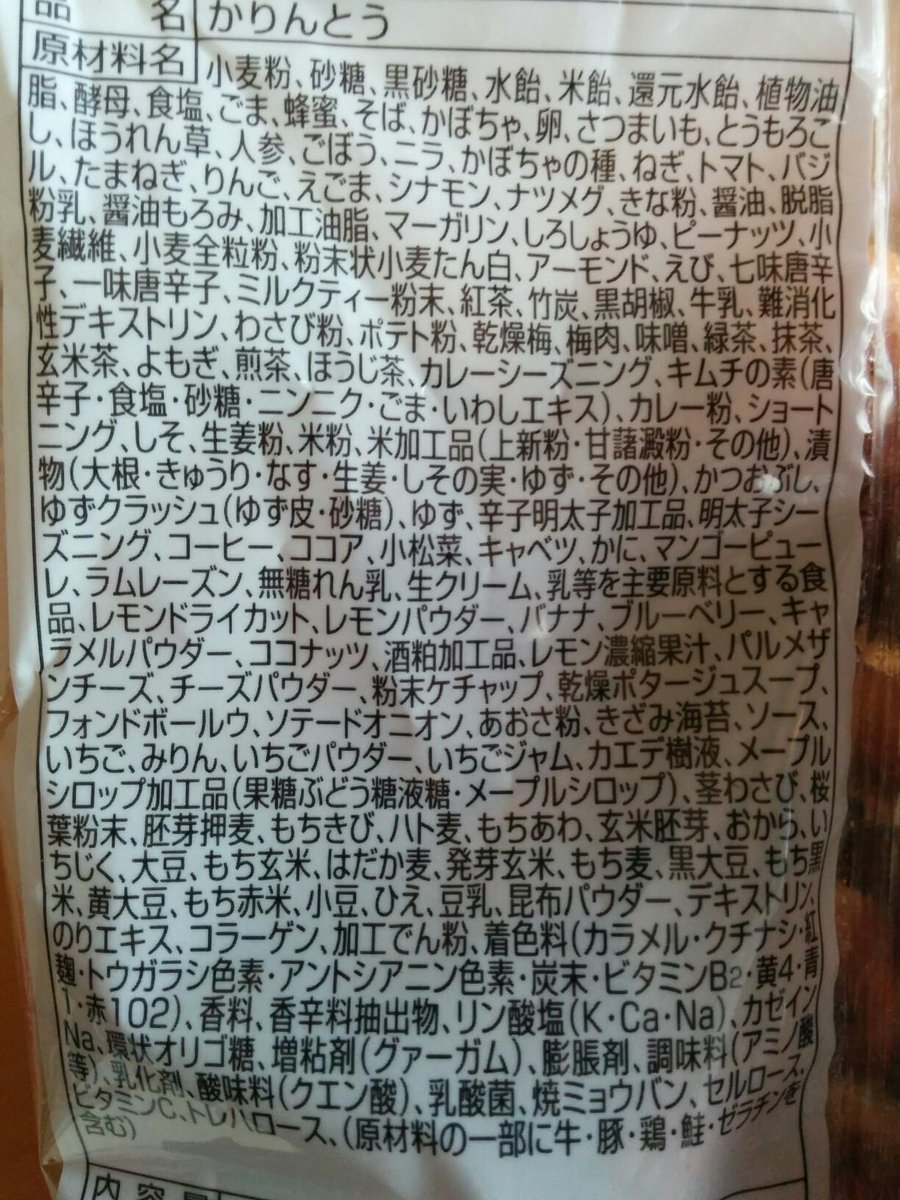 品　名 かりんとう
原材料名 小麦粉、砂糖、黒砂糖、水飴、米飴、還元水飴、植物油
脂、酵母、食塩、ごま、蜂蜜、そば、かぼちゃ、卵、さつまいも、とうもろこ
し、ほうれん草、人参、ごぼう、ニラ、かぼちゃの種、ねぎ、トマト、バジ
ル、たまねぎ、りんご、えごま、シナモン、ナツメグ、きな粉、醤油、脱脂
粉乳、醤油もろみ、加工油脂、マーガリン、しろしょうゆ、ピーナッツ、小
麦繊維、小麦全粒粉、粉末状小麦たん白、アーモンド、えび、七味唐辛
子、一味唐辛子、ミルクティー粉末、紅茶、竹炭、黒胡椒、牛乳、難消化
性デキストリン、わさび粉、ポテト粉、乾燥梅、梅肉、味噌、緑茶、抹茶、
玄米茶、よもぎ、煎茶、ほうじ茶、カレーシーズニング、キムチの素(唐
辛子・食塩・砂糖・ニンニク・ごま・いわしエキス)、カレー粉、ショート
ニング、しそ、生姜粉、米粉、米加工品(上新粉・甘藷澱粉・その他)、漬
物(大根・きゅうり・なす・生姜・しその実・ゆず・その他)、かつおぶし、
ゆずクラッシュ(ゆず皮・砂糖)、ゆず、辛子明太子加工品、明太子シー
ズニング、コーヒー、ココア、小松菜、キャベツ、かに、マンゴーピュー
レ、ラムレーズン、無糖れん乳、生クリーム、乳等を主要原料とする食
品、レモンドライカット、レモンパウダー、バナナ、ブルーベリー、キャ
ラメルパウダー、ココナッツ、酒粕加工品、レモン濃縮果汁、パルメザ
ンチーズ、チーズパウダー、粉末ケチャップ、乾燥ポタージュスープ、
フォンドボールウ、ソテードオニオン、あおさ粉、きざみ海苔、ソース、
いちご、みりん、いちごパウダー、いちごジャム、カエデ樹液、メープル
シロップ加工品(果糖ぶどう糖液糖・メープルシロップ)、茎わさび、桜
葉粉末、胚芽押麦、もちきび、ハト麦、もちあわ、玄米胚芽、おから、い
ちじく、大豆、もち玄米、はだか麦、発芽玄米、もち麦、黒大豆、もち黒
米、黄大豆、もち赤米、小豆、ひえ、豆乳、昆布パウダー、デキストリン、
のりエキス、コラーゲン、加工でん粉、着色料(カラメル・クチナシ・紅
麹・トウガラシ色素・アントシアニン色素・炭末・ビタミンB2・黄4・青
1・赤102)、香料、香辛料抽出物、リン酸塩(K・Ca・Na)、カゼイン
Na、環状オリゴ糖、増粘剤(グァーガム)、膨脹剤、調味料(アミノ酸
等)、乳化剤、酸味料(クエン酸)、乳酸菌、焼ミョウバン、セルロース、
ビタミンC、トレハロース、(原材料の一部に牛・豚・鶏・鮭・ゼラチンを
含む)
内容量